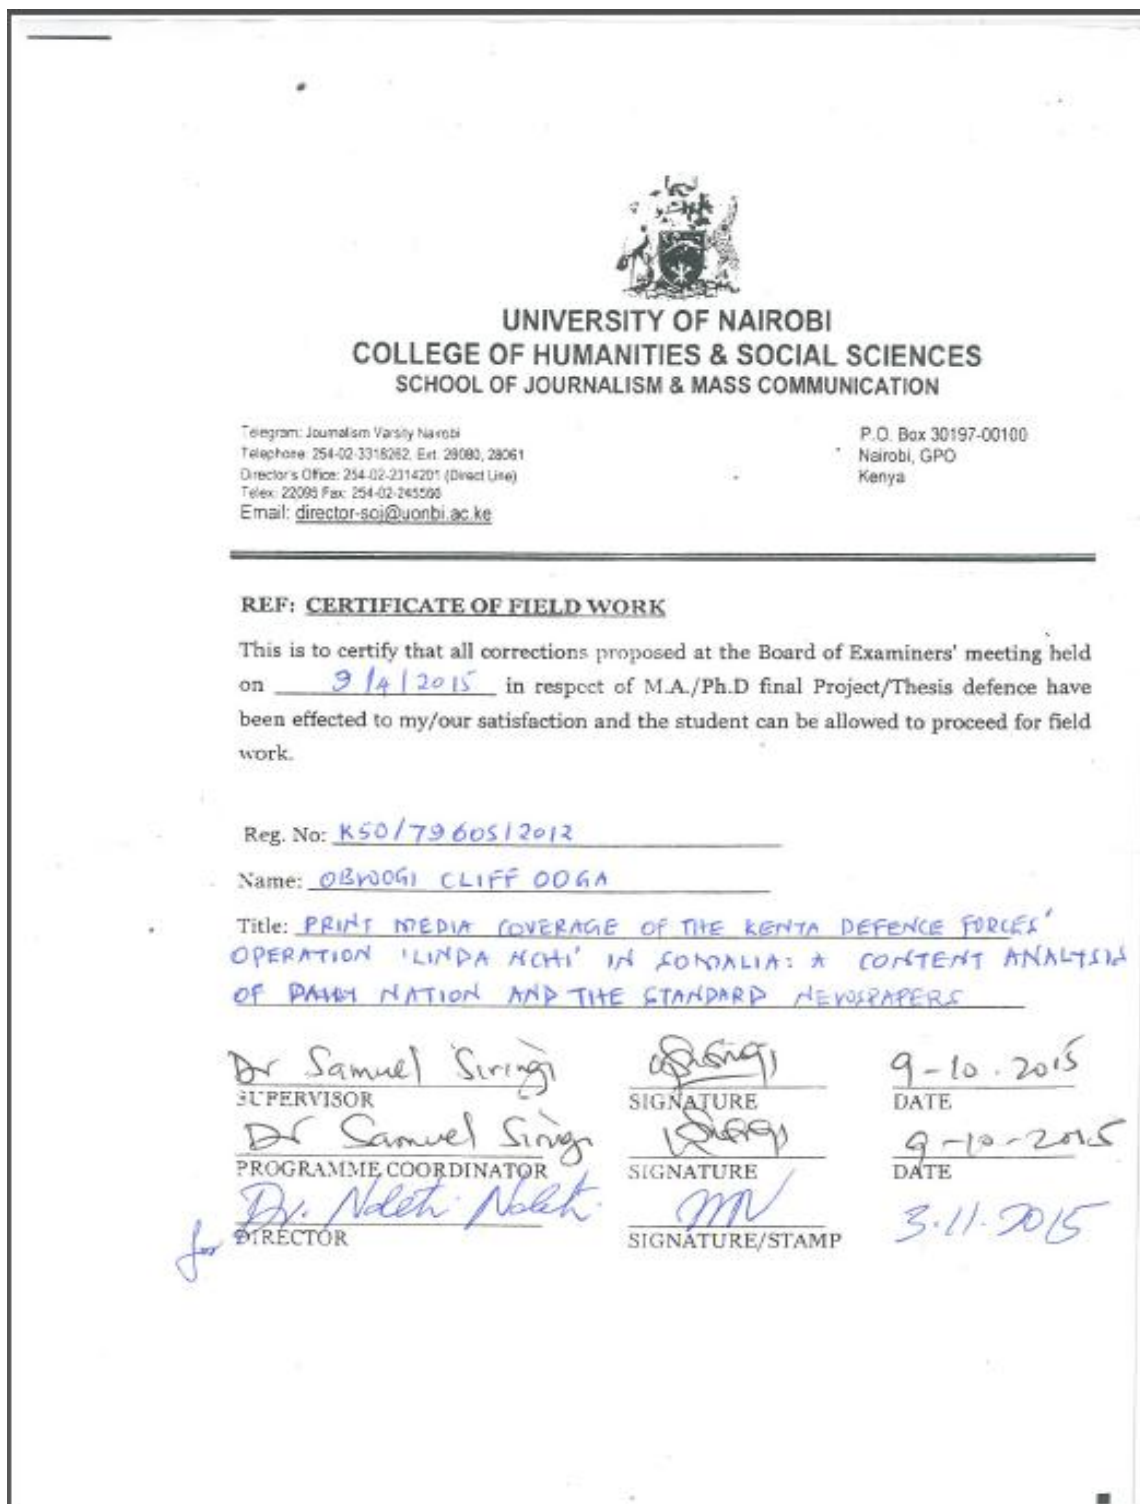 UNIVERSITY OF NAIROBI
COLLEGE OF HUMANITIES & SOCIAL SCIENCES
SCHOOL OF JOURNALISM & MASS COMMUNICATION
Telegram: Journalism Varsity Nairobi
Telephone: 254-02-3318262, Ext. 28080, 28061
Director's Office: 254-02-2314201 (Direct Line)
Telex: 22095 Fax: 254-02-245566
Email: director-soj@uonbi.ac.ke
P.O. Box 30197-00100
Nairobi, GPO
Kenya
REF: CERTIFICATE OF FIELD WORK
This is to certify that all corrections proposed at the Board of Examiners' meeting held
on 9/4/2015 in respect of M.A./Ph.D final Project/Thesis defence have
been effected to my/our satisfaction and the student can be allowed to proceed for field
work.
Reg. No: K50/79605/2012
Name: OBWOGI CLIFF OOGA
Title: PRINT MEDIA COVERAGE OF THE KENYA DEFENCE FORCES'
OPERATION 'LINDA NCHI' IN SOMALIA: A CONTENT ANALYSIS
OF DAILY NATION AND THE STANDARD NEWSPAPERS
Dr Samuel Siringi 9-10.2015
SUPERVISOR SIGNATURE DATE
Dr Samuel Siringi 9-10-2015
PROGRAMME COORDINATOR SIGNATURE DATE
Dr. Ndeti Ndeti 3.11.2015
for DIRECTOR SIGNATURE/STAMP